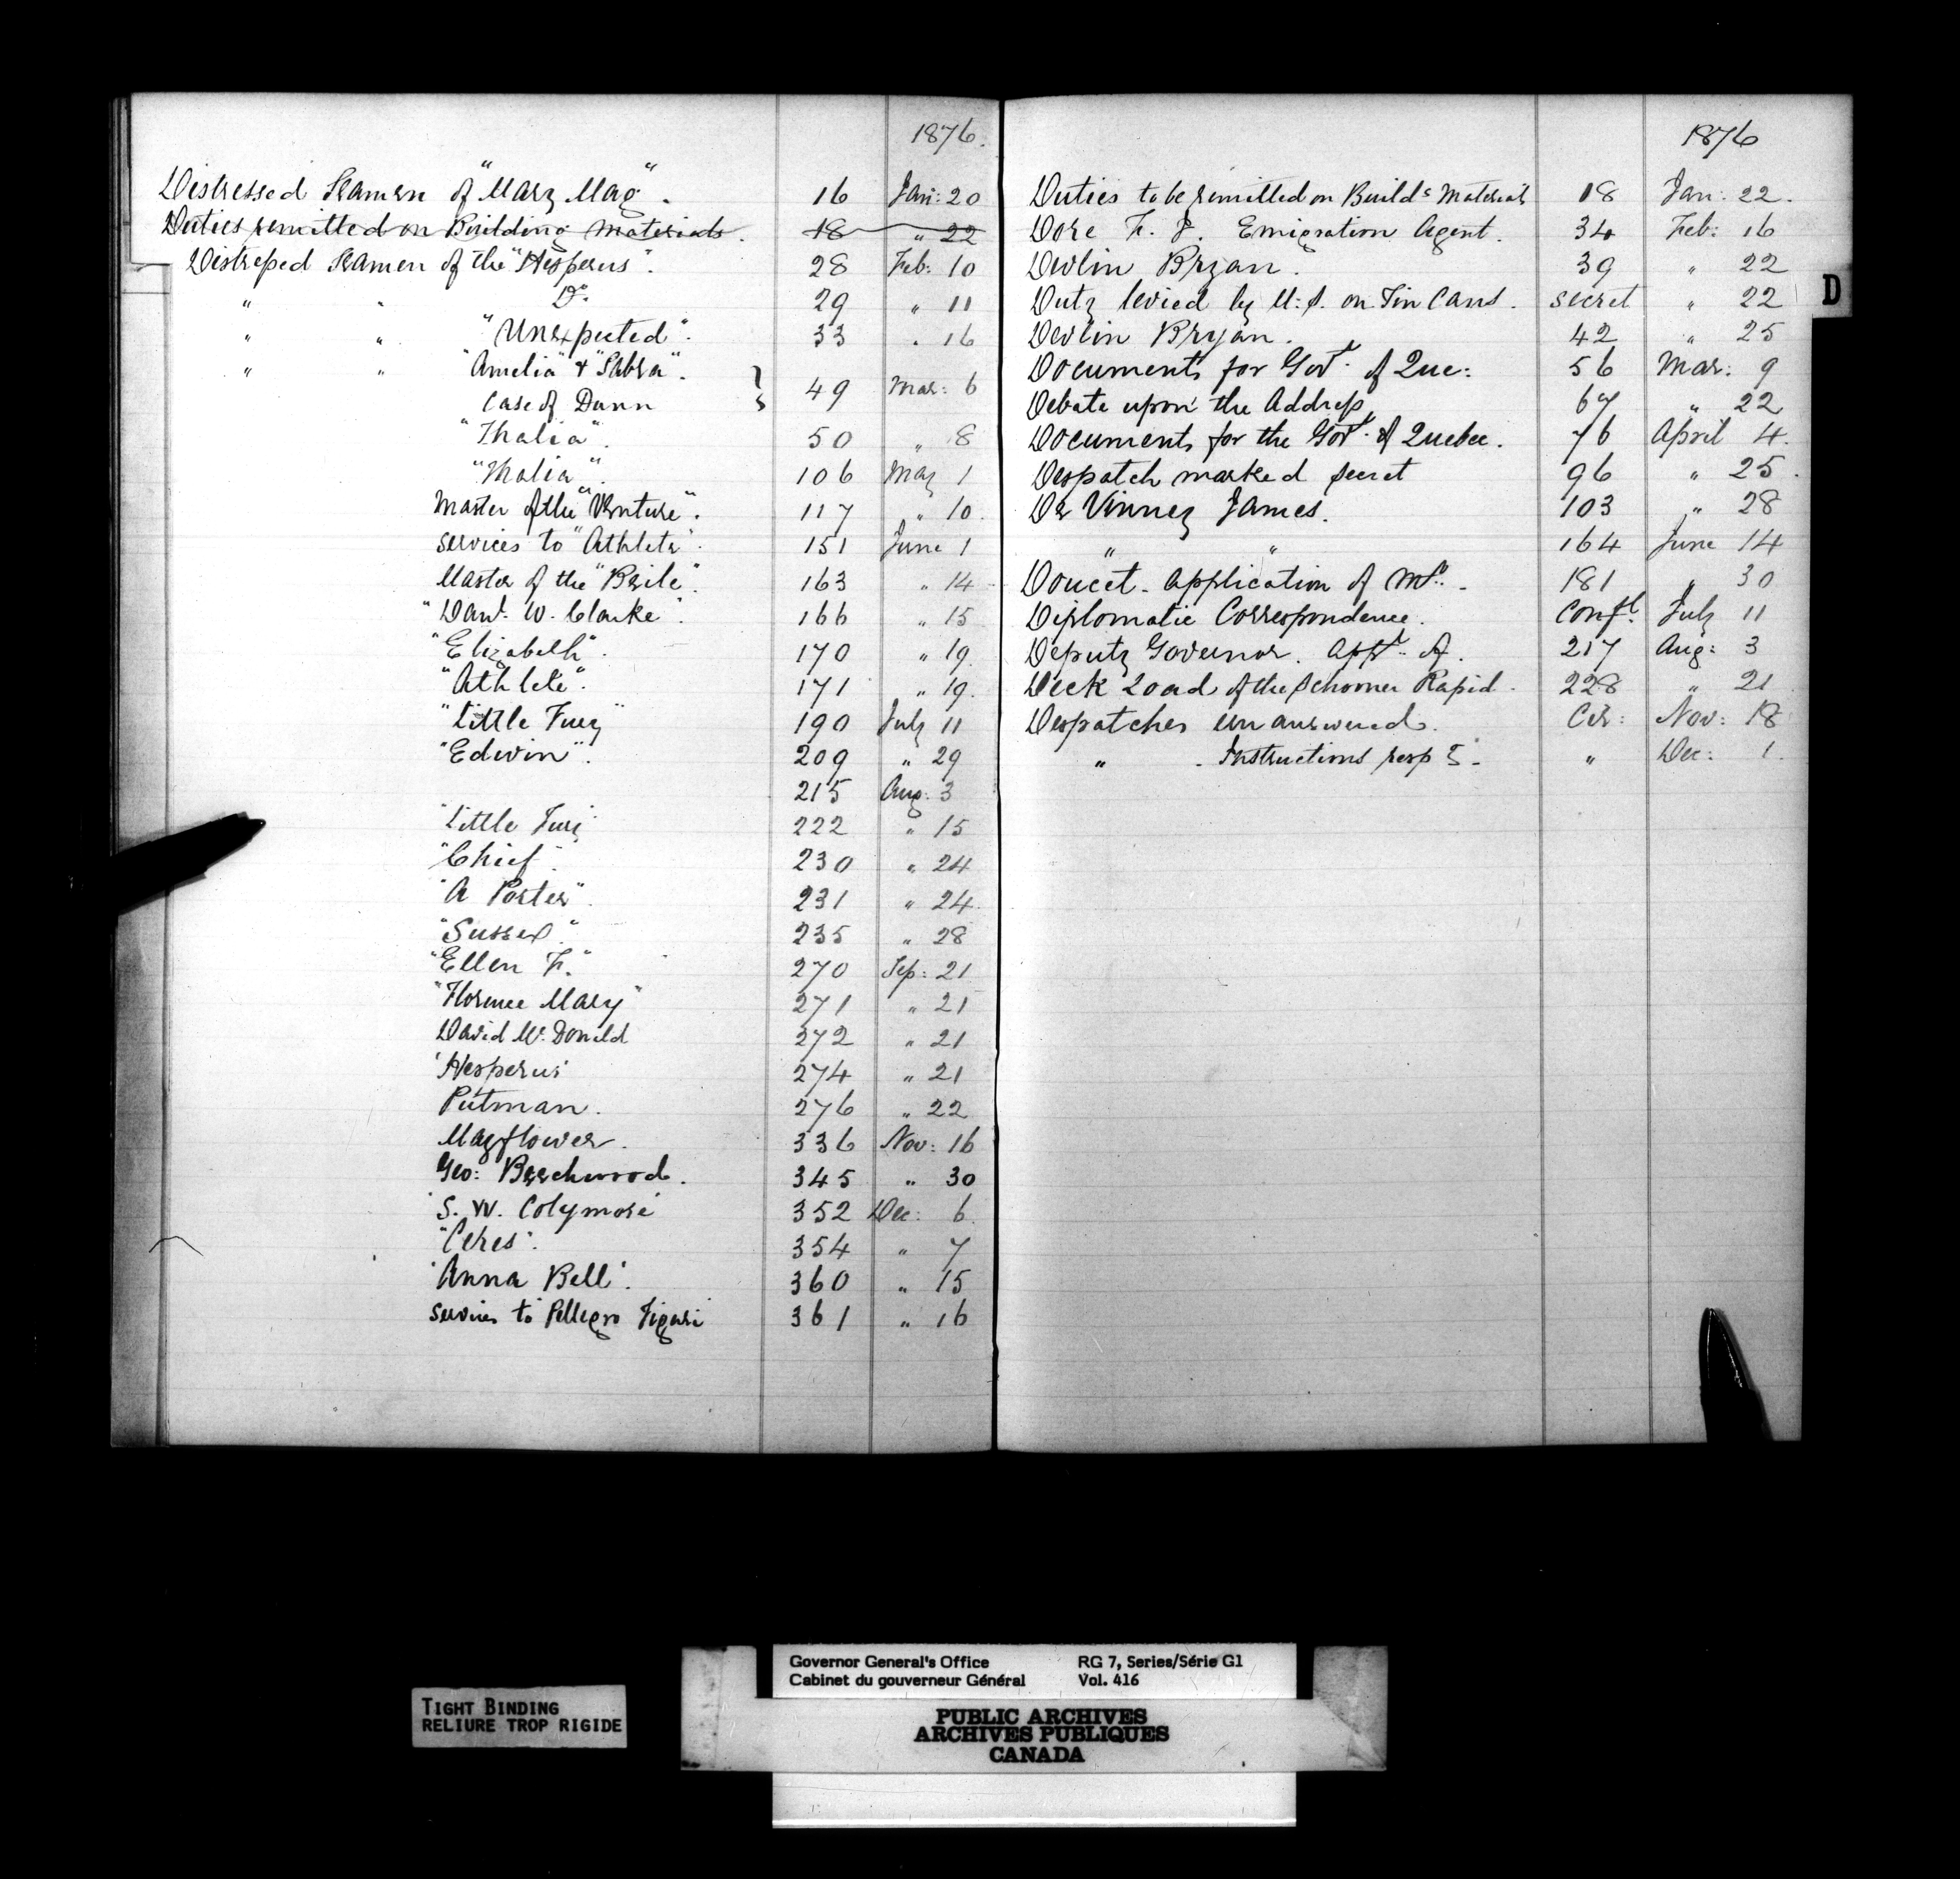 1876.
Distressed Seamen of "Mary May". 16 Jan: 20
Duties remitted on Building Materials. 18 " 22
Distressed Seamen of the "Hesperus". 28 Feb: 10
" " Do. 29 " 11
" " "Unexpected". 33 " 16
" " "Amelia" & "Sabra". } 49 Mar: 6
Case of Dunn
"Thalia". 50 " 8
"Thalia". 106 May 1
Master of the "Venture". 117 " 10.
Services to "Athlete". 151 June 1
Master of the 163 " 14
"Danl. W. Clarke". 166 " 15
"Elizabeth". 170 " 19
"Athlete". 171 " 19.
"Little Fury" 190 July 11
"Edwin". 209 " 29
215 Aug: 3
"Little Fury" 222 " 15
"Chief". 230 " 24
"A Porter". 231 " 24.
"Sussex". 235 " 28
"Ellen F." 270 Sep: 21
"Florence Mary" 271 " 21
David McDonald 272 " 21
'Hesperus' 274 " 21
Putman. 276 " 22
Mayflower. 336 Nov: 16
Geo: Beechwood. 345 " 30
S. W. 352 Dec: 6.
"Ceres". 354 " 7
'Anna Bell'. 360 " 15
services to Pellegro 361 " 16
1876
Duties to be remitted on Buildg Materials 18 Jan: 22.
Dore F. J. Emigration Agent. 34 Feb: 16
Devlin Bryan. 39 " 22
Duty levied by U.S. on Tin Cans. secret " 22
Devlin Bryan. 42 " 25
Documents for Govt. of Que: 56 Mar: 9
Debate upon the Address 67 " 22
Documents for the Govt. of Quebec. 76 April 4.
Despatch marked secret 96 " 25.
De Vinney James. 103 " 28
" " 164 June 14
Doucet. Application of Mr. 181 " 30
Diplomatic Correspondence. Confl. July 11
Deputy Governor. Appt. of. 217 Aug: 3
Deck Load of the Schooner Rapid. 228 " 21
Despatches unanswered. Cir: Nov: 18
" . Instructions respg. " Dec: 1.
D
Governor General's Office
Cabinet du gouverneur Général
RG 7, Series/Série G1
Vol. 416
TIGHT BINDING
RELIURE TROP RIGIDE
PUBLIC ARCHIVES
ARCHIVES PUBLIQUES
CANADA